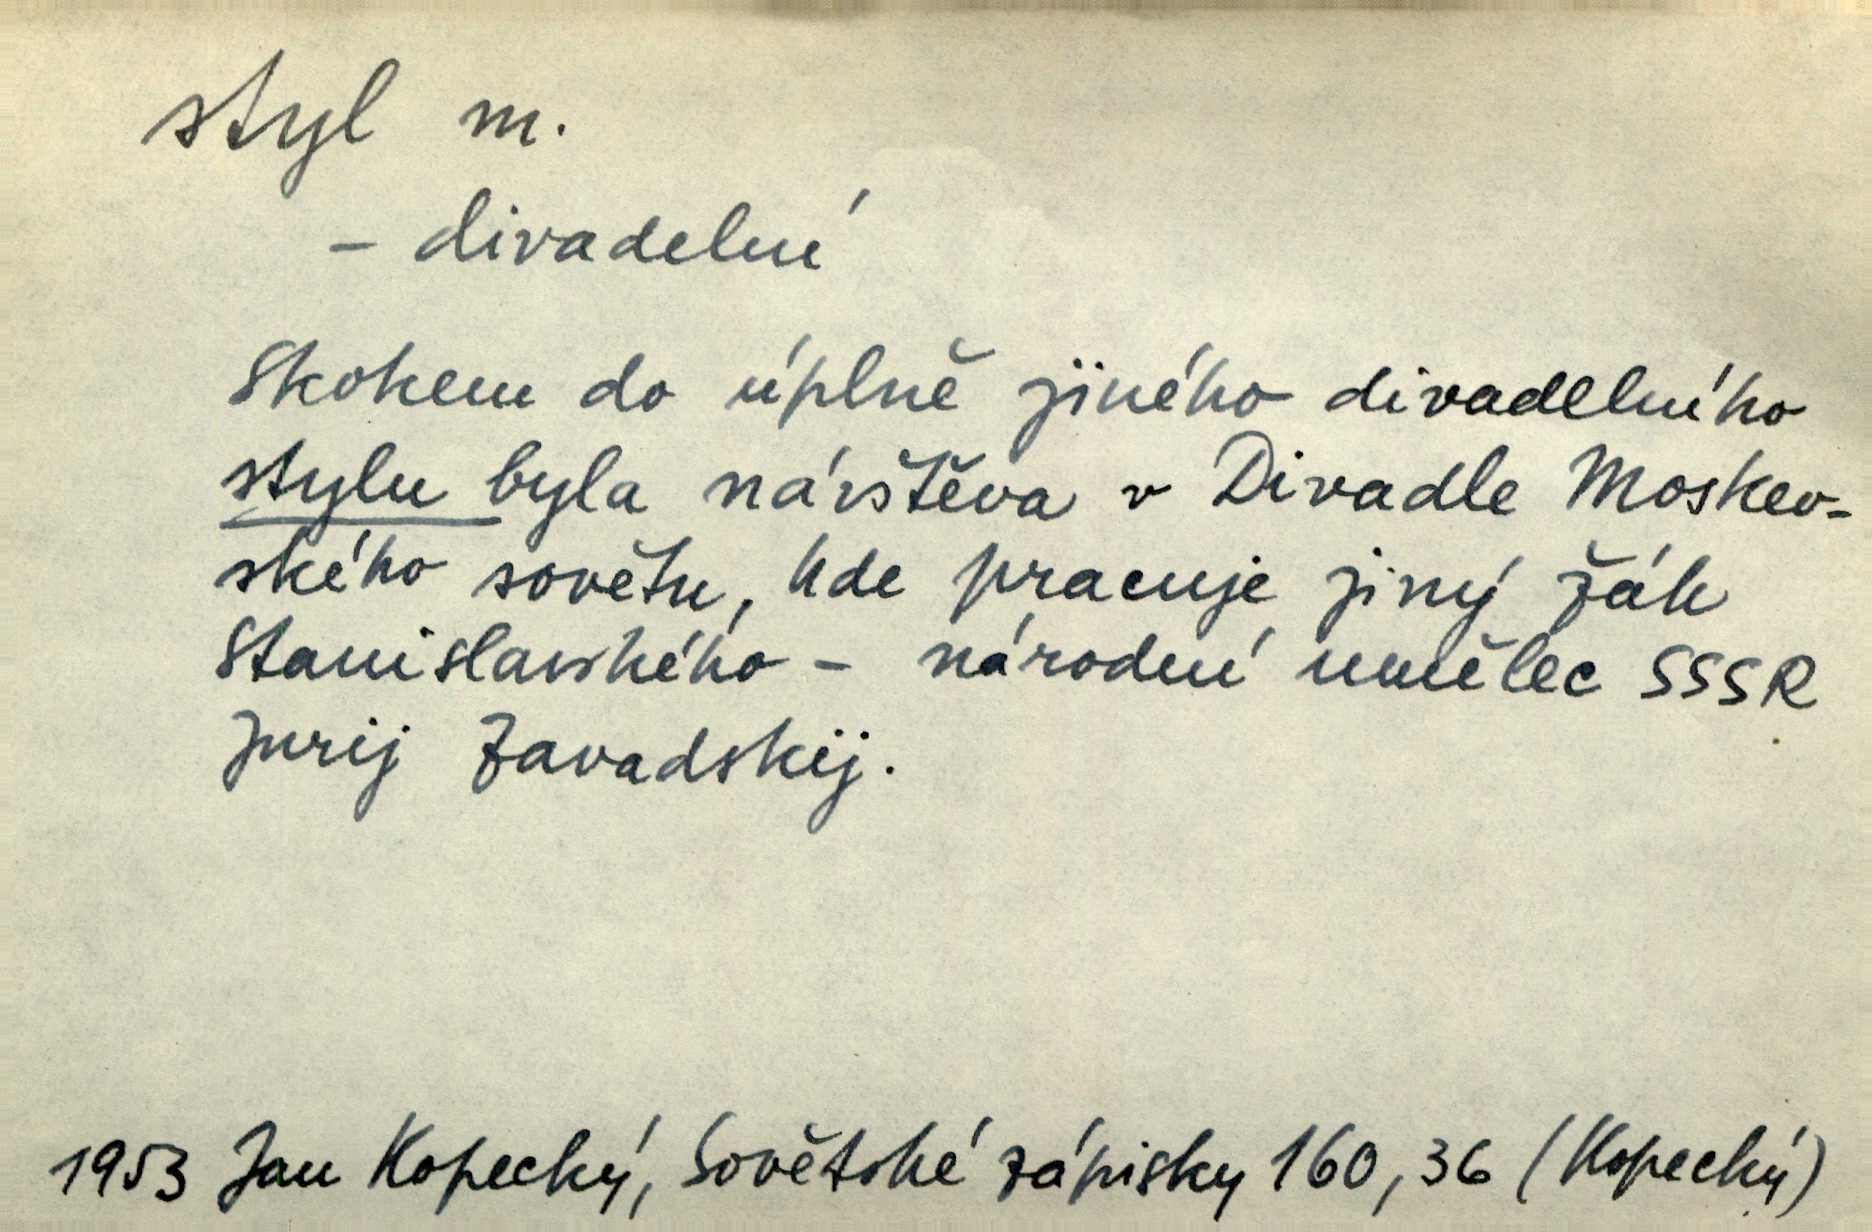 styl m.
– divadelní
Skokem do úplně jiného divadelního
stylu byla návštěva v Divadle Moskev-
ského sovětu, kde pracuje jiný žák
Stanislavského – národní umělec SSSR
Jurij Zavadskij.
1953 Jan Kopecký, Sovětské zápisky 160, 36 (Kopecký)